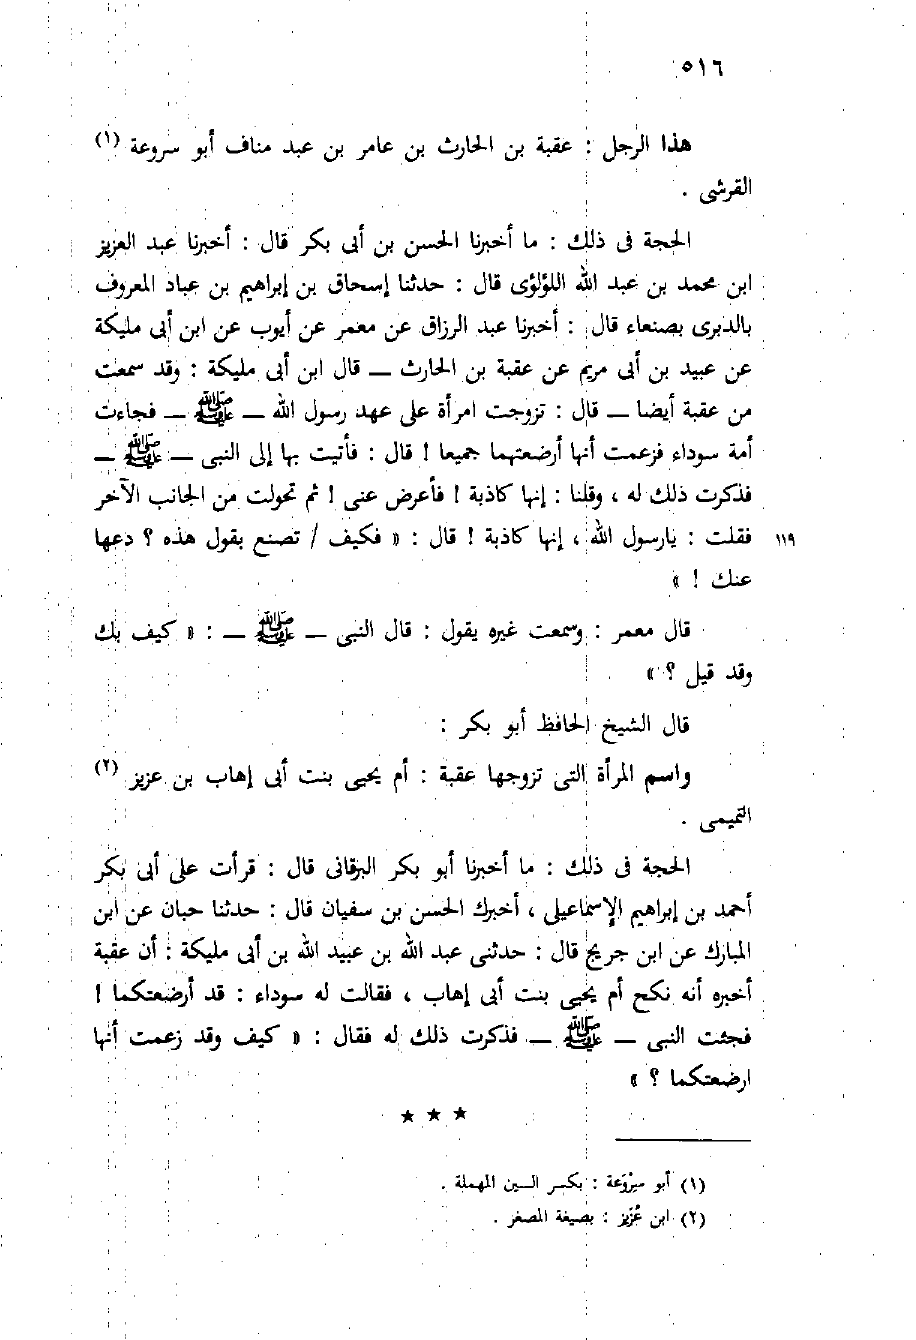 ٥١٦
هذا الرجل : عقبة بن الحارث بن عامر بن عبد مناف أبو سروعة (١)
القرشى .
الحجة فى ذلك : ما أخبرنا الحسن بن أبى بكر قال : أخبرنا عبد العزيز
ابن محمد بن عبد الله اللؤلؤى قال : حدثنا إسحاق بن إبراهيم بن عباد المعروف
بالدبرى بصنعاء قال : أخبرنا عبد الرزاق عن معمر عن أيوب عن ابن أبى مليكة
عن عبيد بن أبى مريم عن عقبة بن الحارث ــ قال ابن أبى مليكة : وقد سمعت
من عقبة أيضا ــ قال : تزوجت امرأة على عهد رسول الله ــ ﷺ ــ فجاءت
أمة سوداء فزعمت أنها أرضعتهما جميعا ! قال : فأتيت بها إلى النبى ــ ﷺ ــ
فذكرت ذلك له ، وقلنا : إنها كاذبة ! فأعرض عنى ! ثم تحولت من الجانب الآخر
١١٩ فقلت : يارسول الله ، إنها كاذبة ! قال : « فكيف / تصنع بقول هذه ؟ دعها
عنك ! »
قال معمر : وسمعت غيره يقول : قال النبى ــ ﷺ ــ : « كيف بك
وقد قيل ؟ »
قال الشيخ الحافظ أبو بكر :
واسم المرأة التى تزوجها عقبة : أم يحيى بنت أبى إهاب بن عزيز (٢)
التميمى .
الحجة فى ذلك : ما أخبرنا أبو بكر البرقانى قال : قرأت على أبى بكر
أحمد بن إبراهيم الإسماعيلى ، أخبرك الحسن بن سفيان قال : حدثنا حبان عن ابن
المبارك عن ابن جريج قال : حدثنى عبد الله بن عبيد الله بن أبى مليكة : أن عقبة
أخبره أنه نكح أم يحيى بنت أبى إهاب ، فقالت له سوداء : قد أرضعتكما !
فجئت النبى ــ ﷺ ــ فذكرت ذلك له فقال : « كيف وقد زعمت أنها
ارضعتكما ؟ »
★ ★ ★
(١) أبو سِرْوَعة : بكسر السين المهملة .
(٢) ابن عُزَيز : بصيغة المصغر .